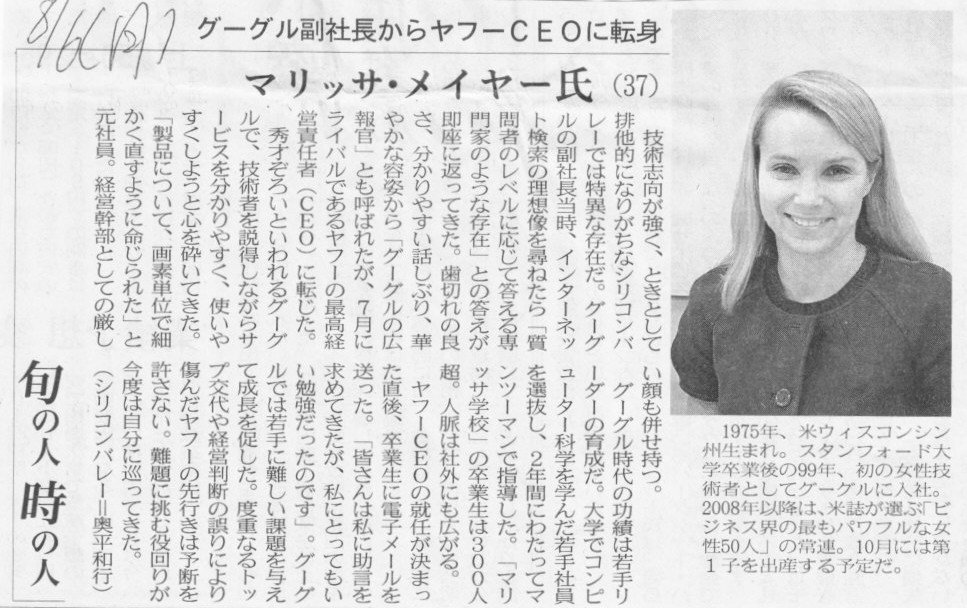 8/6(月)
グーグル副社長からヤフーCEOに転身
マリッサ・メイヤー氏(37)
技術志向が強く、ときとして
排他的になりがちなシリコンバ
レーでは特異な存在だ。グーグ
ルの副社長当時、インターネッ
ト検索の理想像を尋ねたら「質
問者のレベルに応じて答える専
門家のような存在」との答えが
即座に返ってきた。歯切れの良
さ、分かりやすい話しぶり、華
やかな容姿から「グーグルの広
報官」とも呼ばれたが、7月に
ライバルであるヤフーの最高経
営責任者(CEO)に転じた。
秀才ぞろいといわれるグーグ
ルで、技術者を説得しながらサ
ービスを分かりやすく、使いや
すくしようと心を砕いてきた。
「製品について、画素単位で細
かく直すように命じられた」と
元社員。経営幹部としての厳し
い顔も併せ持つ。
グーグル時代の功績は若手リ
ーダーの育成だ。大学でコンピ
ューター科学を学んだ若手社員
を選抜し、2年間にわたってマ
ンツーマンで指導した。「マリ
ッサ学校」の卒業生は300人
超。人脈は社外にも広がる。
ヤフーCEOの就任が決まっ
た直後、卒業生に電子メールを
送った。「皆さんは私に助言を
求めてきたが、私にとってもい
い勉強だったのです」。グーグ
ルでは若手に難しい課題を与え
て成長を促した。度重なるトッ
プ交代や経営判断の誤りにより
傷んだヤフーの先行きは予断を
許さない。難題に挑む役回りが
今度は自分に巡ってきた。
(シリコンバレー=奥平和行)
旬の人 時の人
1975年、米ウィスコンシン
州生まれ。スタンフォード大
学卒業後の99年、初の女性技
術者としてグーグルに入社。
2008年以降は、米誌が選ぶ「ビ
ジネス界の最もパワフルな女
性50人」の常連。10月には第
1子を出産する予定だ。